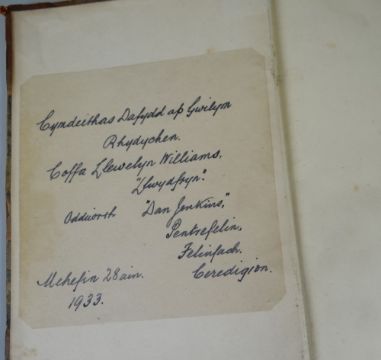 Cymdeithas Dafydd ap Gwilym
Rhydychen.
Coffa Llewelyn Williams,
"Llwydfryn".
Oddiworth "Dan Jenkins,"
Pentrefelin,
Felinfach.
Ceredigion.
Mehefin 28ain.
1933.